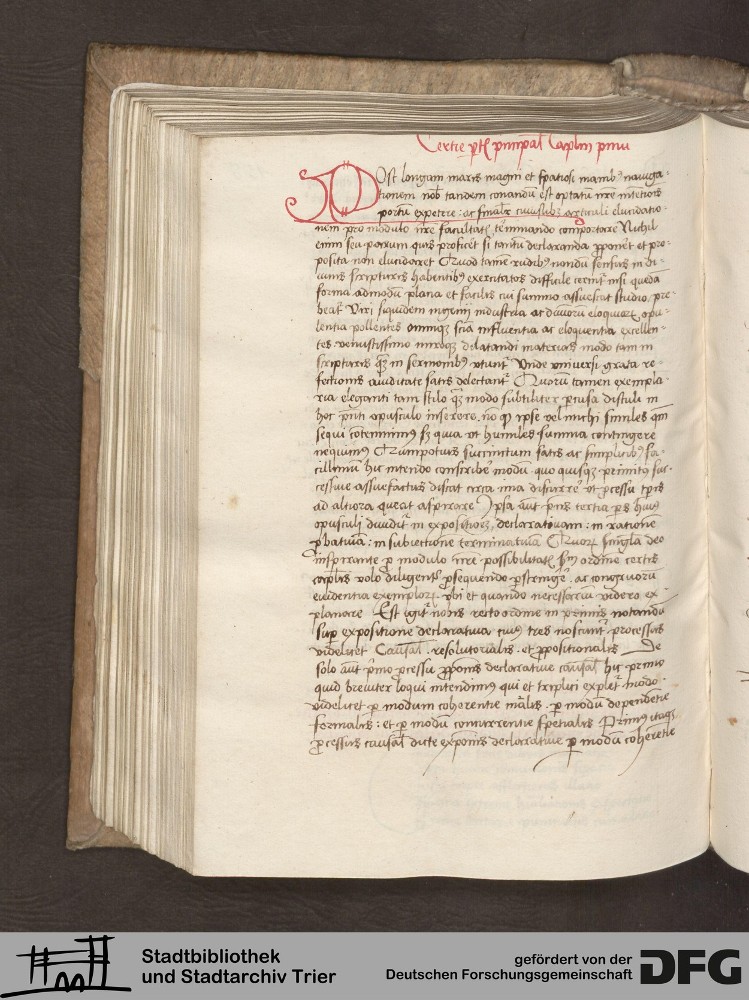 Tertie ptis principal Caplm pmu
Post longam maris magni et spatiosi manibus nauiga-
tionem nob tandem conandu est optatu nre intentiois
portu expetere: ac finalr cuiuslibz articuli elucidatio-
nem pro modulo nre facultatis terminando comportare Nichil
enim seu parum quis proficet si tantu declaranda pponet et pro-
posita non elucidaret Quod tame rudibus nondu sensus in di-
uinis scripturis habentibus exercitatos difficile cernit nisi queda
forma admodu plana et facilis cui summo assuescat studio, pre-
beat Viri siquidem ingenij industria ac diuitiaru eloquar opu-
lentia pollentes omniqz scia influentia ac eloquentia excellen-
tes venustissimo miroqz dilatandi materias modo tam in
scripturis qz in sermonibus utunt Unde vniuersi grata re
fectionis auiditate satis delectant Quoru tamen exempla-
ria eleganti tam stilo qz modo subtiliter ptusa distuli in
hoc pnti opusculo inserere, no qp ipse vel michi similes qm
sequi cotemnimus sz quia ut humiles summa contingere
nequimus Quampotius succinctum satis ac simplicibus fa-
cillimu hic intendo conscribe modu quo quisqz primitus suc-
cessiue assuefactus discat circa ima discurrere et pcessu tpris
ad altiora queat aspirare Ipsa aut pns tertia ps huius
opusculi diuidit in expositioes, declaratoriam: in ratione
pbatiua: in subiectione terminatiua Quor singla deo
inspirante p modulo nre possibilitatis scdm ordine certis
caplis volo diligent psequendo pstringe. ac congruoru
euidentia exemplor. vbi et quando necessaria videro ex-
planare Est igit nobis recto ordine in primis notandu
sup expositione declaratiua cuius tres noscunt processus
videlicet Causal. resolutorialis. et ppositionalis De
solo aut primo pcessu pponis declaratiue causal hic primo
quid breuiter loqui intendimus qui et triplici explet modo.
videlicet p modum coherentie mалis. p modu dependentie
formalis: et p modu concurrentie specialis Primus itaqz
pcessus causal dicte exponis declaratiue p modu coherentie
Stadtbibliothek
und Stadtarchiv Trier
gefördert von der
Deutschen Forschungsgemeinschaft
DFG